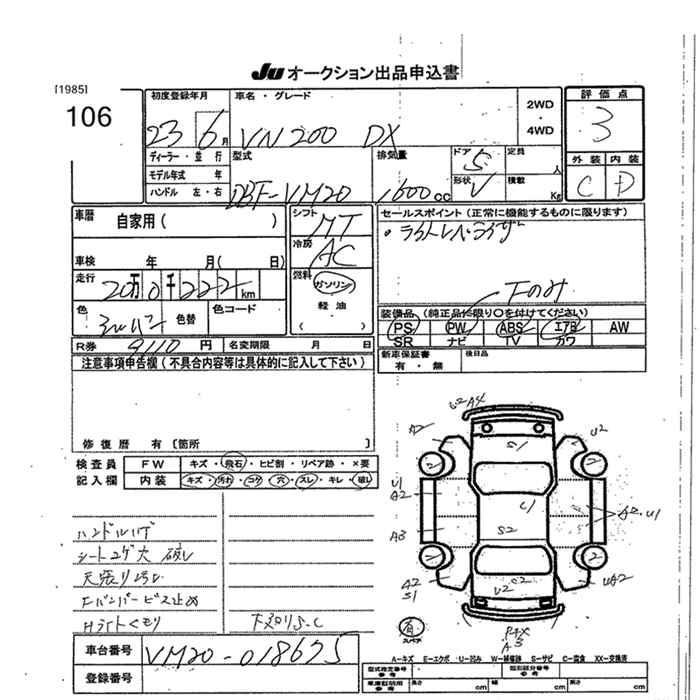 Ju オークション出品申込書
[1985]
106
初度登録年月
23 6月
車名・グレード
VN200 DX
2WD
・
4WD
評価点
3
ディーラー・並行
モデル年式 年
ハンドル 左・右
型式
DBF-VM20
排気量
1600cc
ドア 5
定員 人
形状 V
積載 Kg
外装 内装
C D
車歴
自家用( )
車検 年 月( 日)
走行
20万0千222km
色
シルバー
色替
色コード
シフト
MT
冷房
AC
燃料
ガソリン
軽油
( )
セールスポイント(正常に機能するものに限ります)
。ライトレベライザー
Fのみ
装備品(純正品に限り○を付けてください)
PS PW ABS エアB AW
SR ナビ TV カワ
R券 9110円
名変期限 月 日
新車保証書
有・無
後日品
注意事項申告欄(不具合内容等は具体的に記入して下さい)
修復歴 有〔箇所 〕
検査員
記入欄
FW キズ・飛石・ヒビ割・リペア跡・×要
内装 キズ・汚れ・コゲ・穴・スレ・キレ・破レ
ハンドルハゲ
シートコゲ大 破レ
天張り汚レ
Fバンパービス止め
Hライトくもり
下廻りS.C
車台番号
VM20-018675
登録番号
A2
A4
S1
U2
2
2
U1
A2
C1
A2 U1
A3
S2
2
2
A2
S1
U2
UA2
有
スペア
A3
A-キズ E-エクボ U-凹み W-補修跡 S-サビ C-腐食 XX-交換済
型式指定番号
参考
類別区分番号
参考
車庫証明用
参考
長さ cm
幅 cm
高さ cm